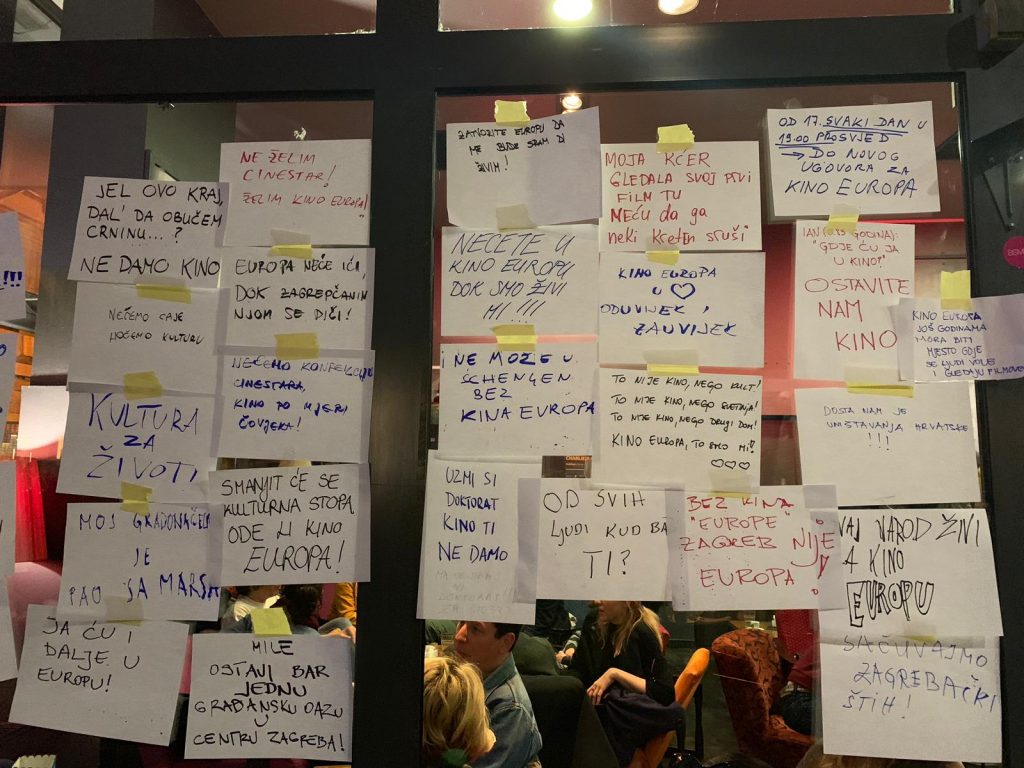 JEL OVO KRAJ,
DAL' DA OBUČEM
CRNINU...?
NE DAMO KINO
NE ŽELIM
CINESTAR!
ŽELIM KINO EUROPA!
EUROPA NEĆE IĆI,
DOK ZAGREPČANIN
NJOM SE DIČI!
NEĆEMO CAJE
HOĆEMO KULTURU
NEĆEMO
CINESTARA,
KINO PO MJERI
ČOVJEKA!
KULTURA
ZA
ŽIVOT!
SMANJIT ĆE SE
KULTURNA STOPA
ODE LI KINO
EUROPA!
MOJ
JE
PAO SA MARSA
JA ĆU I
DALJE U
EUROPU!
MILE
OSTAVI BAR
JEDNU
GRAĐANSKU OAZU
U
CENTRU ZAGREBA!
ZATVORITE EUROPU DA
ME BUDE SRAM DI
ŽIVIM!
NEĆETE U
KINO EUROPU
DOK SMO ŽIVI
MI!!!
NE MOŽE U
SCHENGEN
BEZ
KINA EUROPA
UZMI SI
DOKTORAT
KINO TI
NE DAMO
MOJA KĆER
GLEDALA SVOJ PRVI
FILM TU
neki kreten sruši
KINO EUROPA
U ♡
ODUVIJEK,
ZAUVIJEK
TO NIJE KINO, NEGO KULT!
TO NIJE KINO, NEGO SVETINJA!
TO NIJE KINO, NEGO DRUGI DOM!
KINO EUROPA, TO SMO MI!
♡♡♡
OD SVIH
LJUDI KUD BAŠ
TI?
BEZ KINA
"EUROPE"
ZAGREB NIJE
EUROPA!
OD 17. SVAKI DAN U
19:00 PROSVJED
→ DO NOVOG
UGOVORA ZA
KINO EUROPA
IAN GODINA):
"GDJE ĆU JA
U KINO?"
OSTAVITE
NAM
KINO
KINO EUROPA
JOŠ GODINAMA
MORA BITI
MJESTO GDJE
SE LJUDI VOLE
I GLEDAJU FILMOVE
DOSTA NAM JE
UNIŠTAVANJA HRVATSKE
!!!
NAROD ŽIVI
A KINO
EUROPU
SAČUVAJMO
ZAGREBAČKI
ŠTIH!